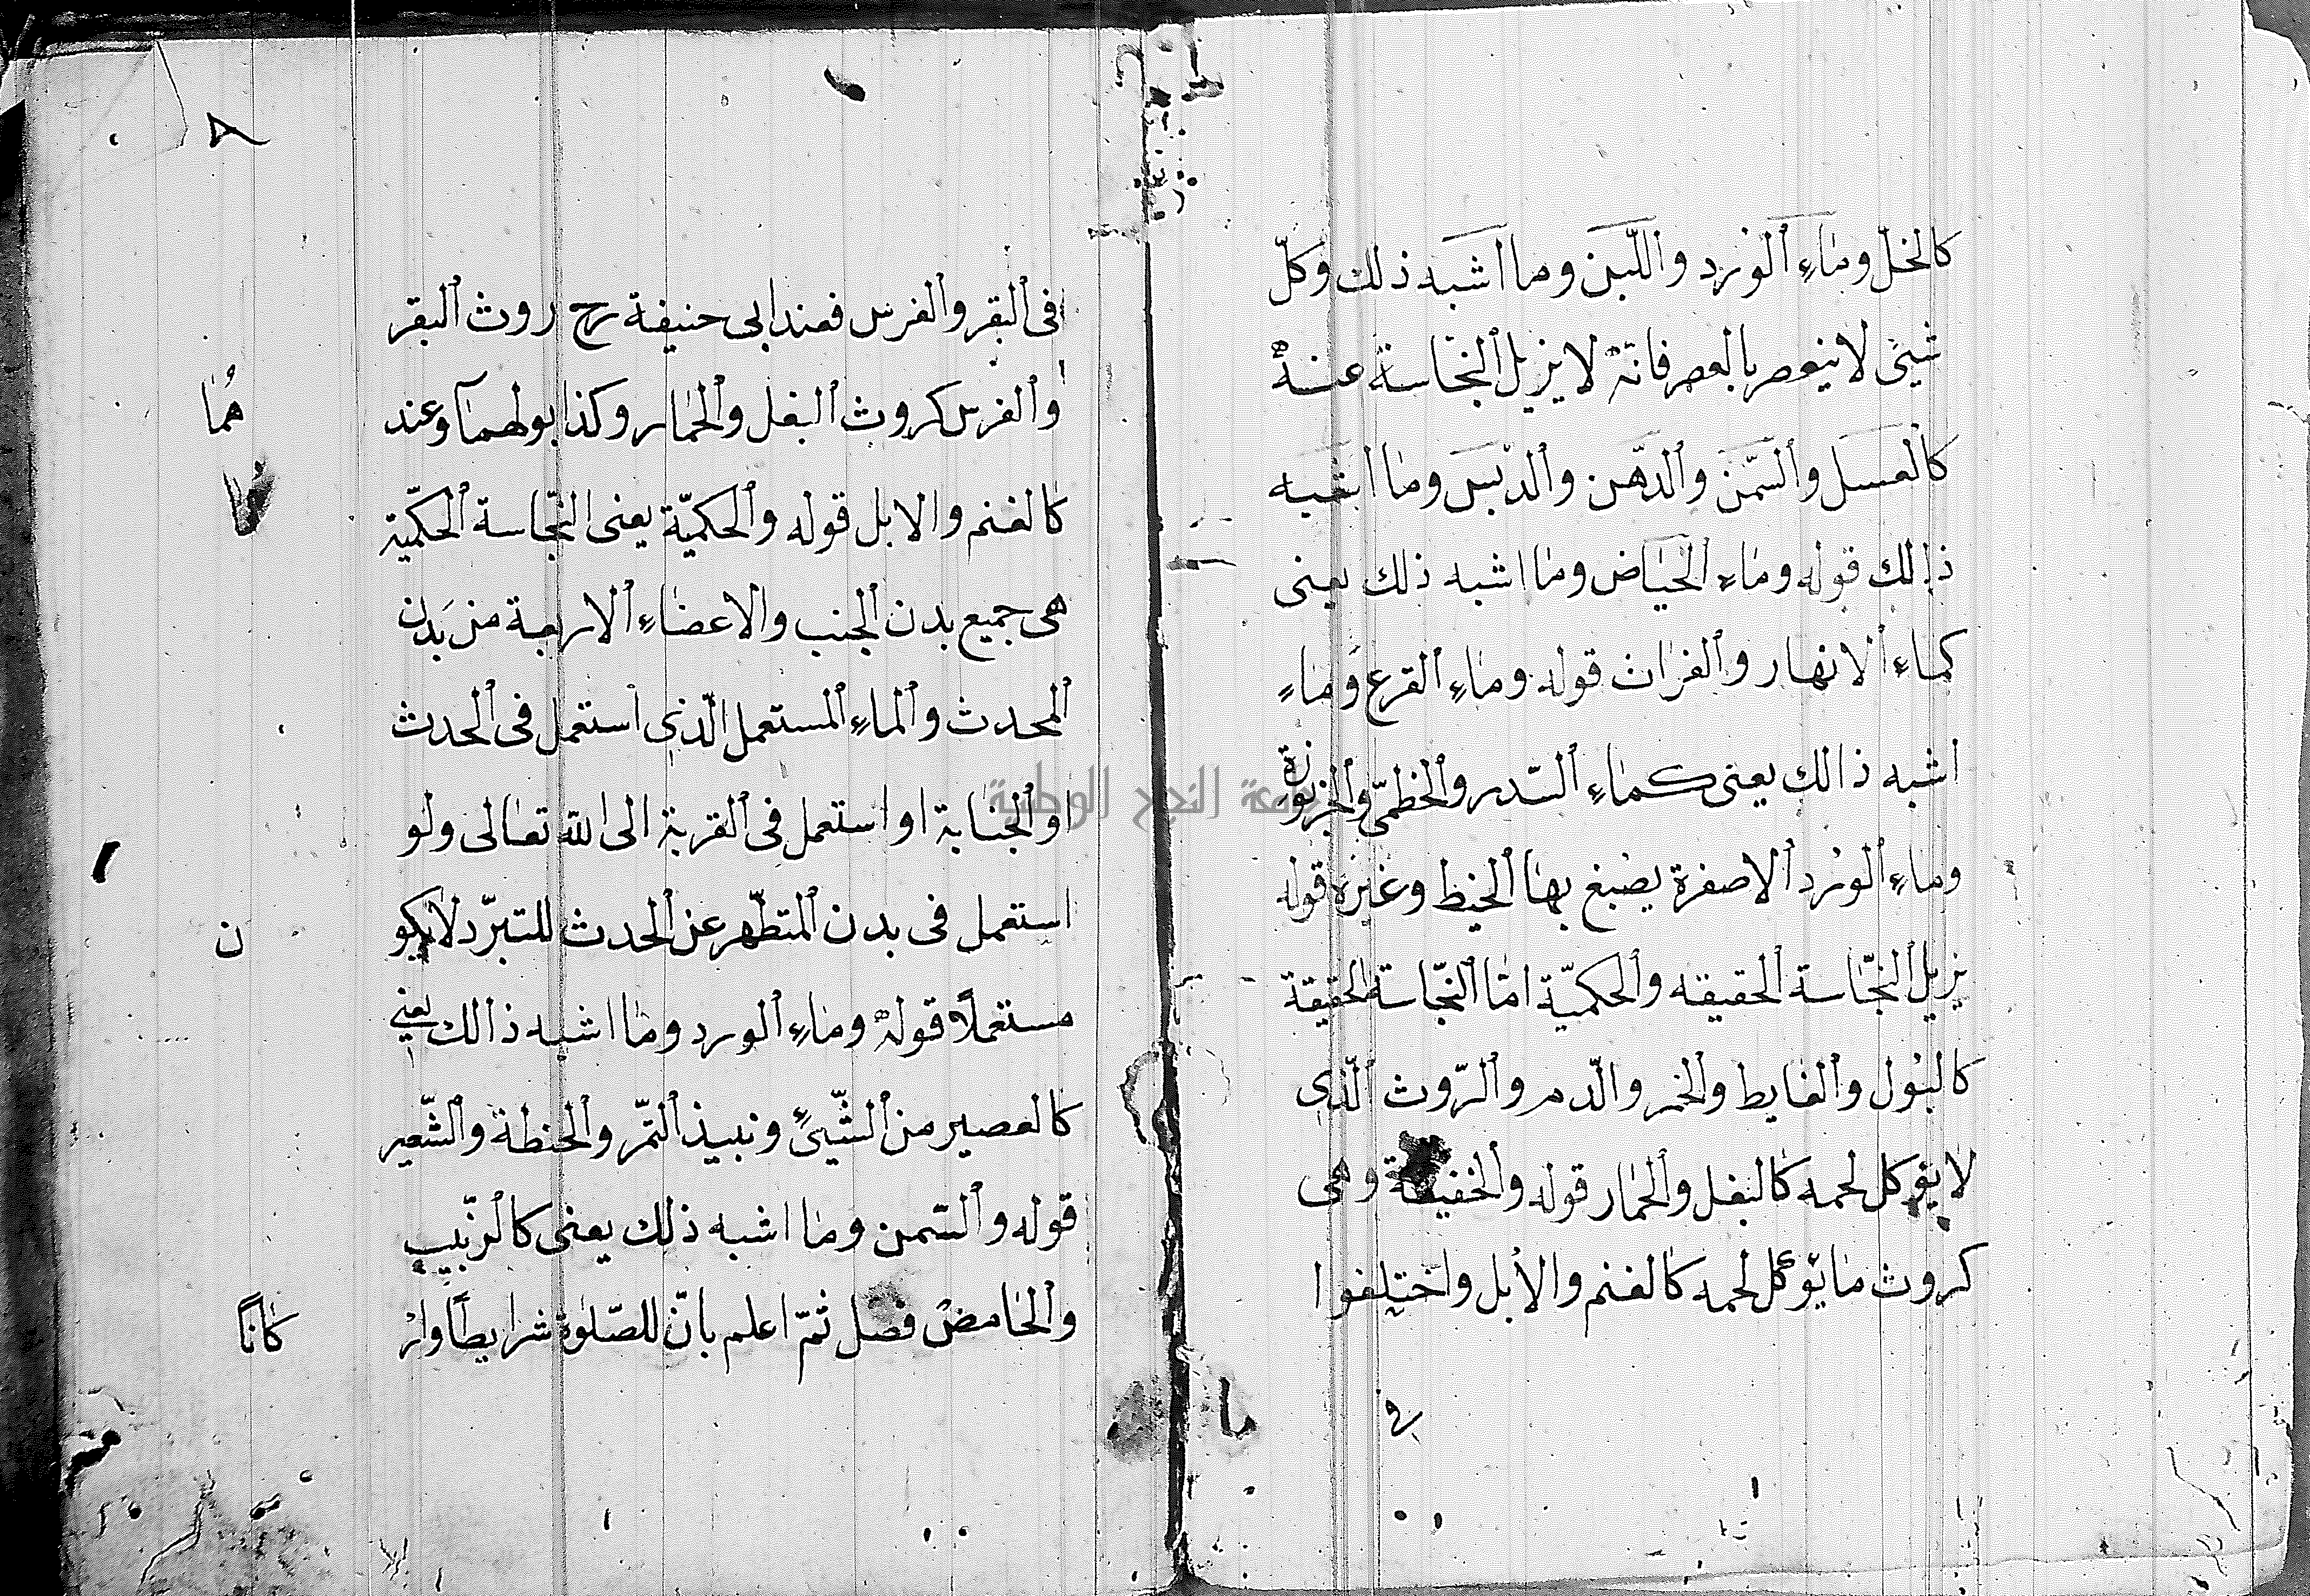 كالخل وماءِ الورد واللّبن وما اشبه ذلك وكلّ
شيئ لا ينعصر بالعصر فانّه لا يزيل النجّاسة عنه
كالعسل والسّمن والدّهن والدّبس وما اشبه
ذالك قوله وماء الحياض وما اشبه ذلك يعنى
كماء الانهار والفراث قوله وماءِ القرع وماءٍ
اشبه ذالك يعنى كماءِ السّدر والخطمّى والجزورة
وماءِ الورد الاصفرة يصبغ بها الخيط وغيره قوله
يزيل النجّاسة الحقيقه والحكميّة امّا النجّاسة الحقيقة
كالبول والغايط والخمر والدّم والرّوث الّذى
لا يؤكل لحمه كالبغل والحمار قوله والخفيفة وهى
كروث ما يؤكل لحمه كالغنم والابل واختلفوا
فى
٨
فى البقر والفرس فعند ابى حنيفة رح روث البقر
والفرس كروث البغل والحمار وكذا بولهما وعند هُما
كالغنم والابل قوله والحكميّة يعنى النجّاسة الحكميّة
هى جميع بدن الجنب والاعضاءِ الاربعة من بَدن
المحدث والماءِ المستعمل الّذى استعمل فى الحدث
او الجنابة او استعمل فى القربة الى الله تعالى ولو
استعمل فى بدن المتطّهر عن الحدث للتبرّد لا يكو ن
مستعملاً قوله وماءِ الورد وما اشبه ذالك يعنى
كالعصير من الشّيئ ونبيذ التمّر والحنطة والشّعير
قوله والسّمن وما اشبه ذلك يعنى كالزّبيب
والحامض فصل ثمّ اعلم بانّ للصّلوة شرايطاً وار كاناً
جامعة النجاح الوطنية